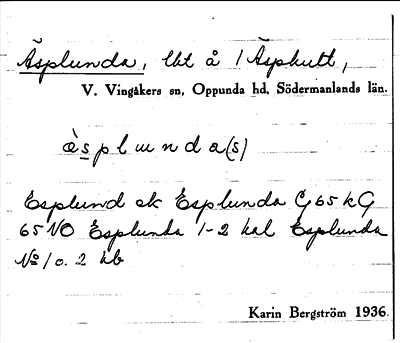 Äsplunda, lht å 1 Äsphult,
V. Vingåkers sn, Oppunda hd, Södermanlands län.
ä̀splunda(s)
Esplund ek Esplunda G 65 k G
65 NO Esplunda 1-2 hal Esplunda
No 1 o. 2 hb
Karin Bergström 1936.